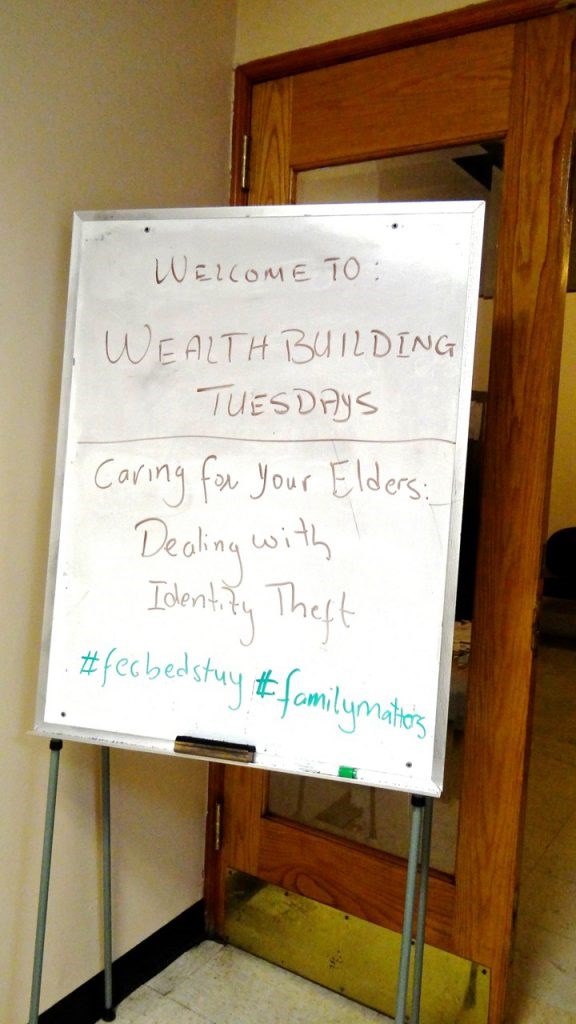 WELCOME TO:
WEALTH BUILDING
TUESDAYS
Caring for Your Elders:
Dealing with
Identity Theft
#fecbedstuy #familymatters